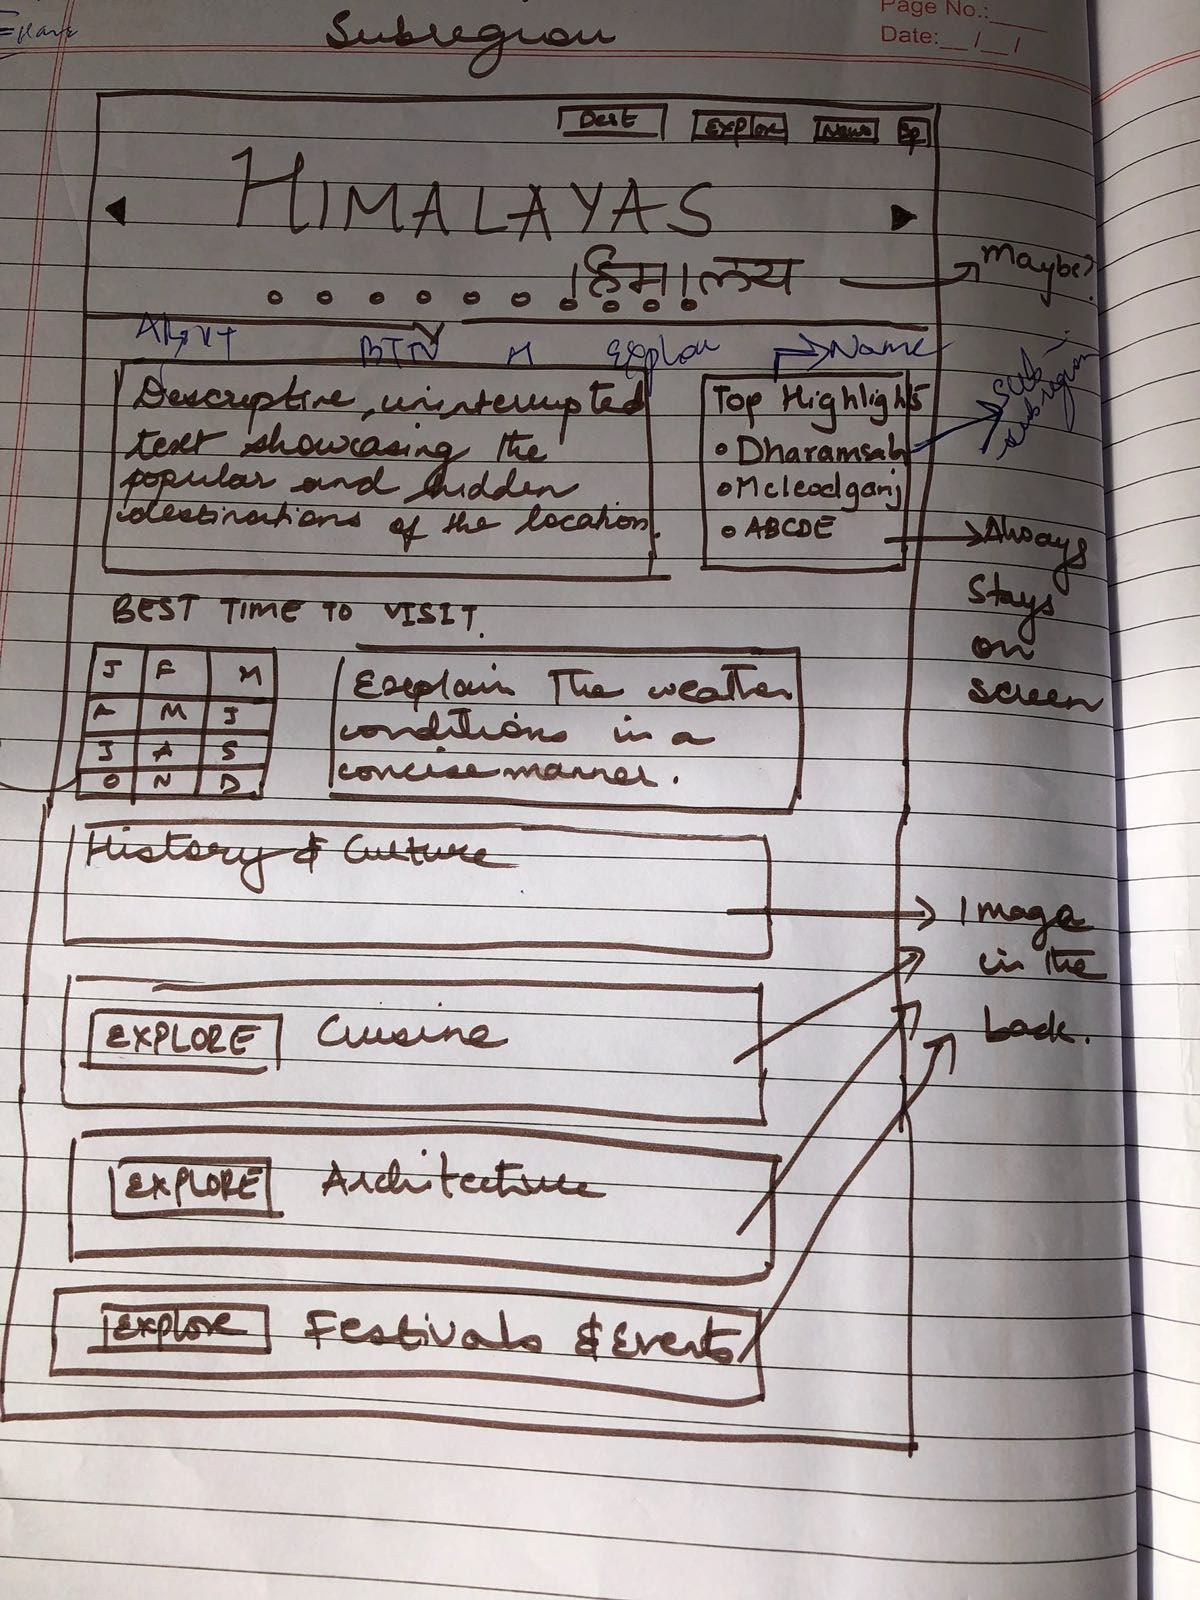 Page No.:
Date: __/__/
Subregion
Dest Explore News Sp
HIMALAYAS
हिमालय
Maybe?
About BTTV M Explore Name
Descriptive, uninterrupted
text showcasing the
popular and hidden
destinations of the location.
Top Highlights
Dharamsala
Mcleodganj
ABCDE
Sub-
subregion
Always
Stays
on
screen
BEST TIME TO VISIT.
J F M
A M J
J A S
O N D
Explain The weather
conditions in a
concise manner.
History & Culture
Image
in the
back.
EXPLORE Cuisine
EXPLORE Architecture
Explore Festivals & Events